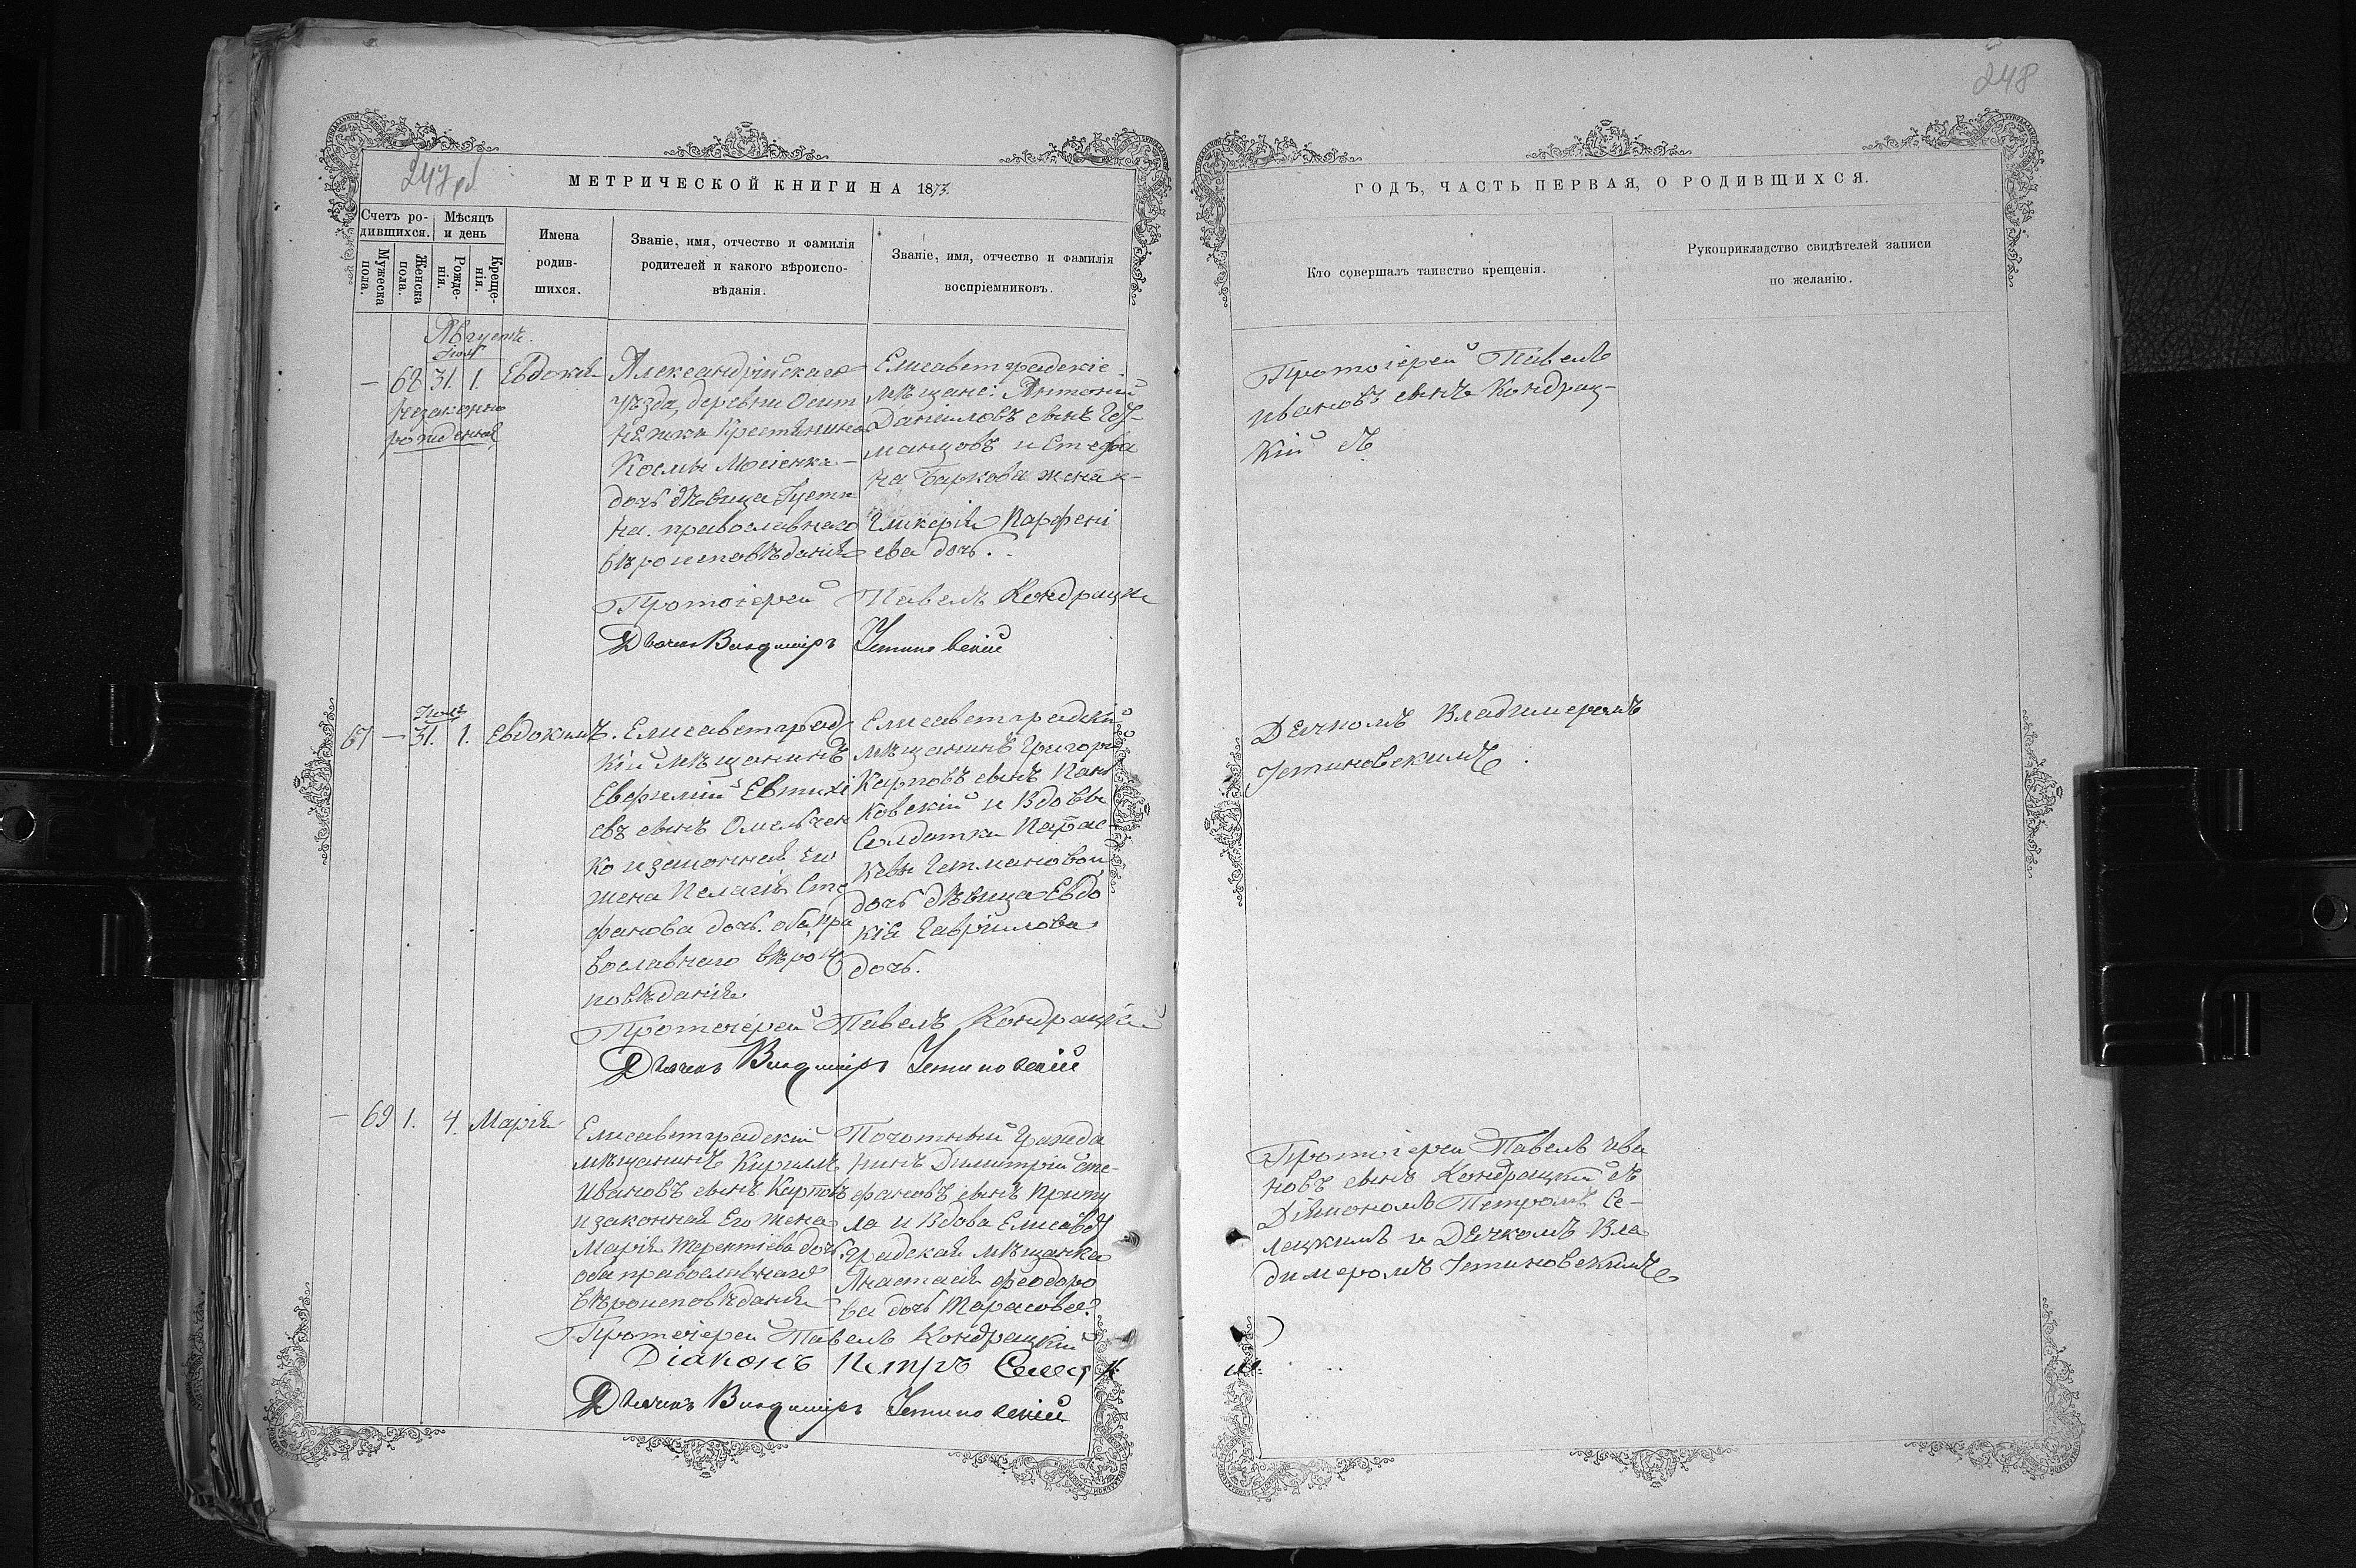 248
247об
МЕТРИЧЕСКОЙ КНИГИ НА 1873.
Счетъ ро-
дившихся.
Мужеска
пола.
Женска
пола.
Мѣсяцъ
и день
Рожде-
нія.
Креще-
нія.
Имена
родив-
шихся.
Званіе, имя, отчество и фамилія
родителей и какого вѣроиспо-
вѣданія.
Званіе, имя, отчество и фамилія
воспріемниковъ.
Августъ.
Іюля
— 68 31. 1. Евдокія
незаконно
рожденная
Александрійскаго
уѣзда, деревни Осит
няжки крестьянина
Космы Мосіенка –
дочь дѣвица Густи
на. православнаго
вѣроисповѣданія
Елисаветградскіе
мѣщане: Антоній
Даніиловъ сынъ
манцовъ и Стефа
на Баркова жена
Гликерія Парфені
ева дочь.
Протоіерей Павелъ Кондрацкі
Дьячекъ Владиміръ Устиновскій
Іюля
67 — 31. 1. Евдокимъ.
Елисаветград
кій мѣщанинъ
Евфимій Евтихі
евъ сынъ Омельчен
ко и законная его
жена Пелагія Сте
фанова дочь. оба пра
вославнаго вѣроис
повѣданія
Елисаветградскій
мѣщанинъ Григорій
Карповъ сынъ Пань
ковскій и вдовы
Солдатки Парас-
кевы Гетмановой
дочь дѣвица Евдо
кія Гавріилова
дочь.
Протоіерей Павелъ Кондрацкій
Дьячекъ Владиміръ Устиновскій
— 69 1. 4. Марія
Елисаветградскій
мѣщанинъ Кириллъ
Ивановъ сынъ Карповъ
и законная Его жена
Марія Терентіева дочь.
оба православнаго
вѣроисповѣданія
Почотный Гражда
нинъ Димитрій Сте-
фановъ сынъ Припу
ла и вдова Елисавет
градская мѣщанка
Анастасія Феодоро
ва дочь Тарасова
Протоіерей Павелъ Кондрацкій
Діаконъ Петръ
Дьячекъ Владиміръ Устиновскій
ГОДЪ, ЧАСТЬ ПЕРВАЯ, О РОДИВШИХСЯ.
Кто совершалъ таинство крещенія.
Рукоприкладство свидѣтелей записи
по желанію.
Протоіерей Павелъ
Ивановъ сынъ Кондрац-
кій съ
Дьячкомъ Владимеромъ
Устиновскимъ.
Протоіерей Павелъ Ива
новъ сынъ Кондрацкій съ
Діакономъ Петромъ Се-
лецкимъ и Дьячкомъ Вла
димеромъ Устиновскимъ